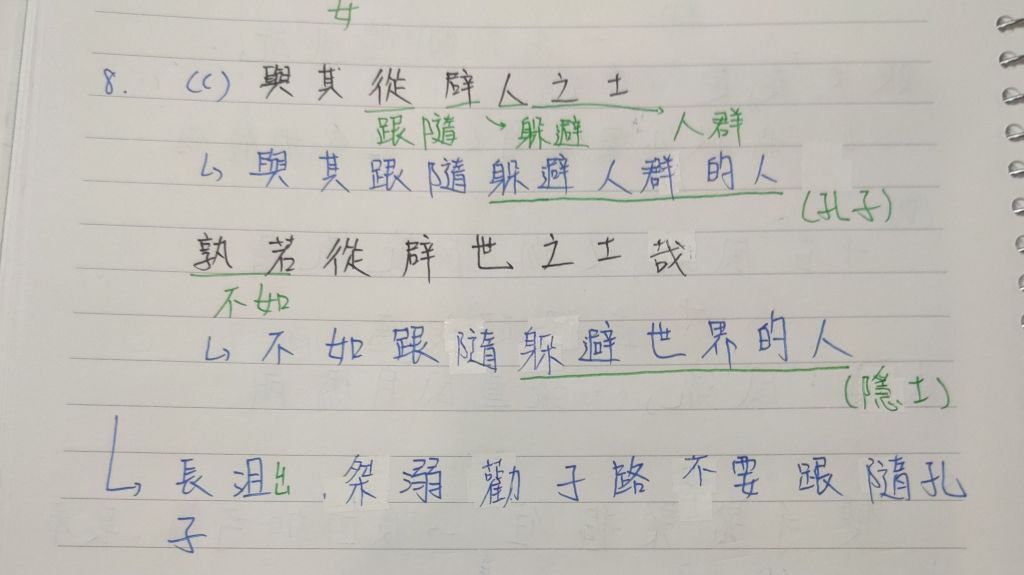 女
8. (C) 與其從辟人之士
跟隨 → 躲避 → 人群
↳ 與其跟隨躲避人群的人
(孔子)
孰若從辟世之士哉
不如
↳ 不如跟隨躲避世界的人
(隱士)
↳ 長沮出、桀溺勸子路不要跟隨孔
子